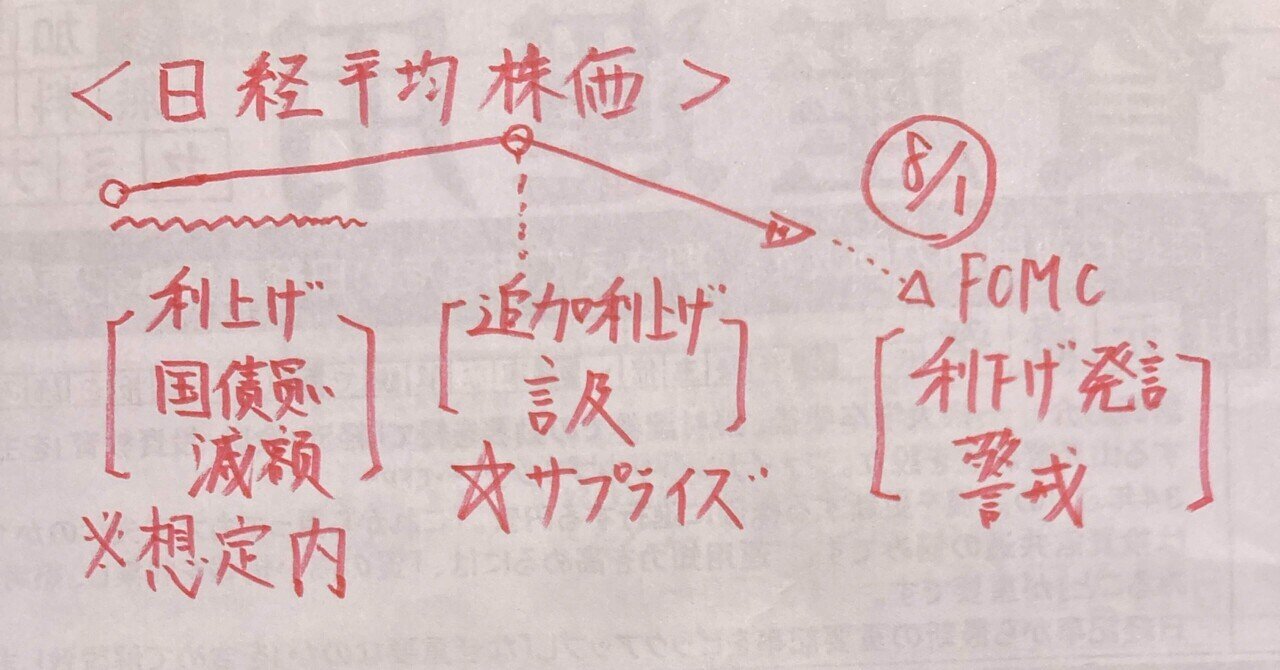 <日経平均株価>
8/1
利上げ
国債買い
減額
※想定内
追加利上げ
言及
☆サプライズ
△FOMC
利下げ発言
警戒